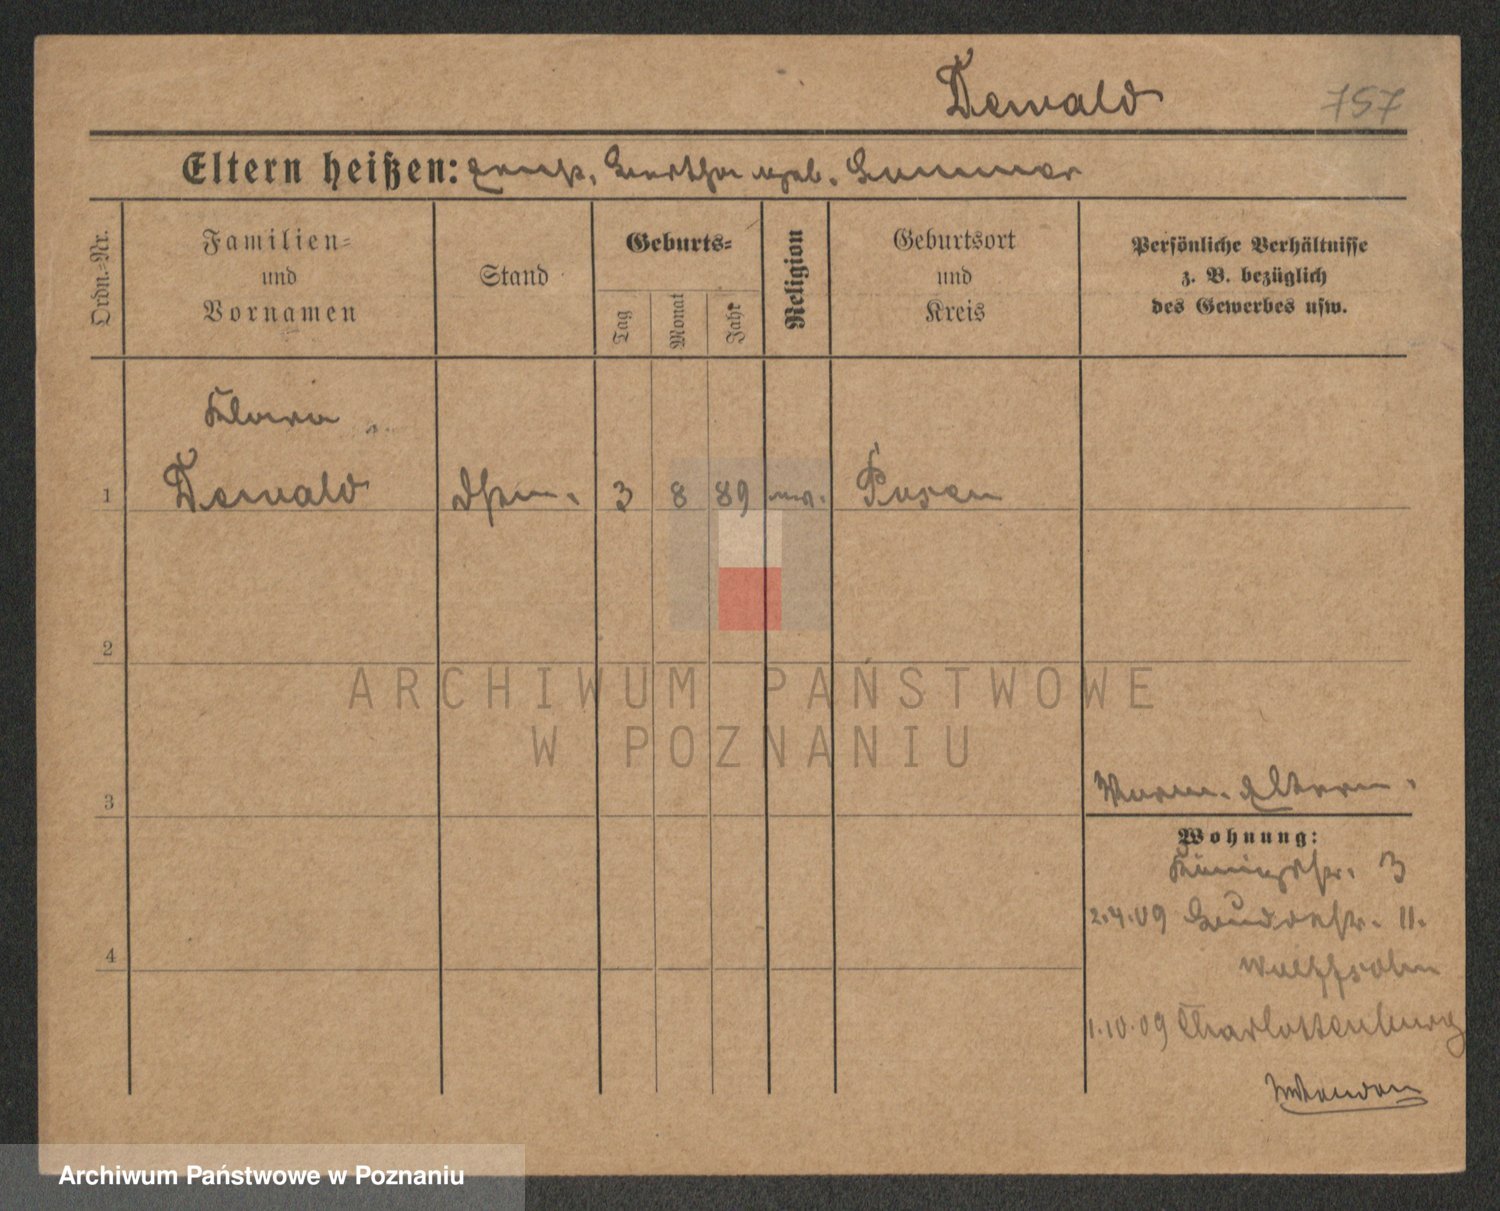 Dewald 757
Eltern heißen: Ernst, Bertha geb.
Ordn.-Nr.
Familien-
und
Vornamen
Stand
Geburts-
Tag
Monat
Jahr
Religion
Geburtsort
und
Kreis
Persönliche Verhältnisse
z. B. bezüglich
des Gewerbes usw.
Klara
1 Dewald 3 8 89 Posen
2
ARCHIWUM PAŃSTWOWE
W POZNANIU
Eltern.
3
Wohnung:
Königstr. 3
2.4.09 11.
4
1.10.09 Charlottenburg
Archiwum Państwowe w Poznaniu